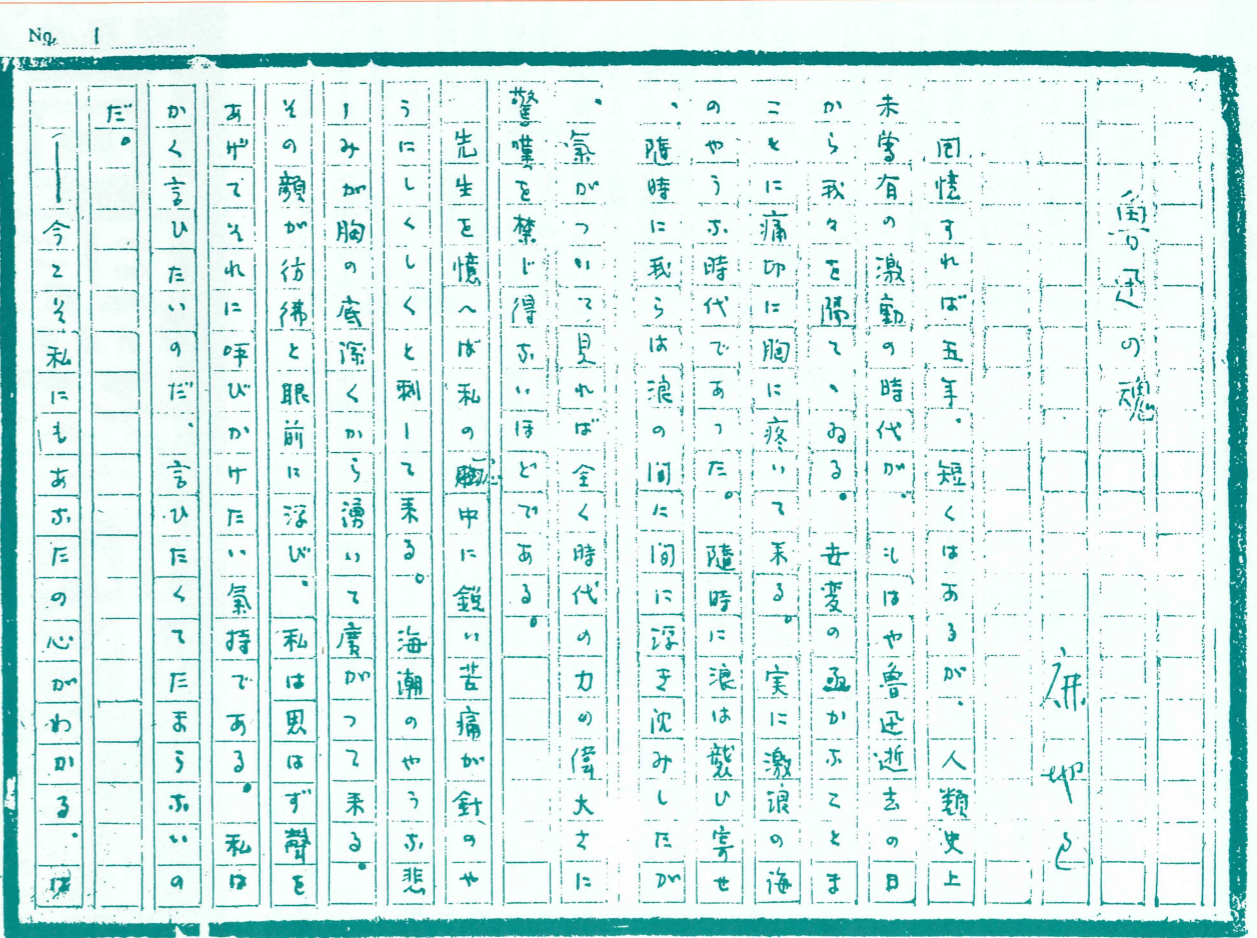 No. 1
魯迅の魂
回憶すれば五年、短くはあるが、人類史上
未曾有の激動の時代が、もはや魯迅逝去の日
から我々を隔てゝゐる。世変の亟かなことま
ことに痛切に胸に疼いて来る。実に激浪の海
のやうな時代であった。随時に浪は襲ひ寄せ
、随時に我らは浪の間に間に浮き沈みしたが
、氣がついて見れば全く時代の力の偉大さに
驚嘆を禁じ得ないほどである。
先生を憶へば私の胸中に鋭い苦痛が針のや
うにしくしくと刺して来る。海潮のやうな悲
しみが胸の底深くから湧いて廣がつて来る。
その顔が彷彿と眼前に浮び、私は思はず聲を
あげてそれに呼びかけたい氣持である。私は
かく言ひたいのだ、言ひたくてたまらないの
だ。
——今こそ私にもあなたの心がわかる。は